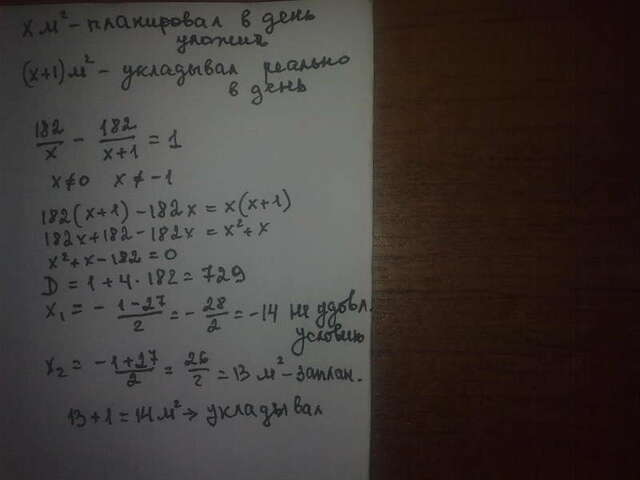 x м² - планировал в день
уложить
(x+1) м² - укладывал реально
в день
182/x - 182/(x+1) = 1
x≠0 x≠-1
182(x+1) - 182x = x(x+1)
182x+182-182x = x²+x
x²+x-182=0
D = 1+4·182=729
x₁ = - (1-27)/2 = - 28/2 = -14 не удовл.
условию
x₂ = (-1+27)/2 = 26/2 = 13 м² - заплан.
13+1=14 м² → укладывал